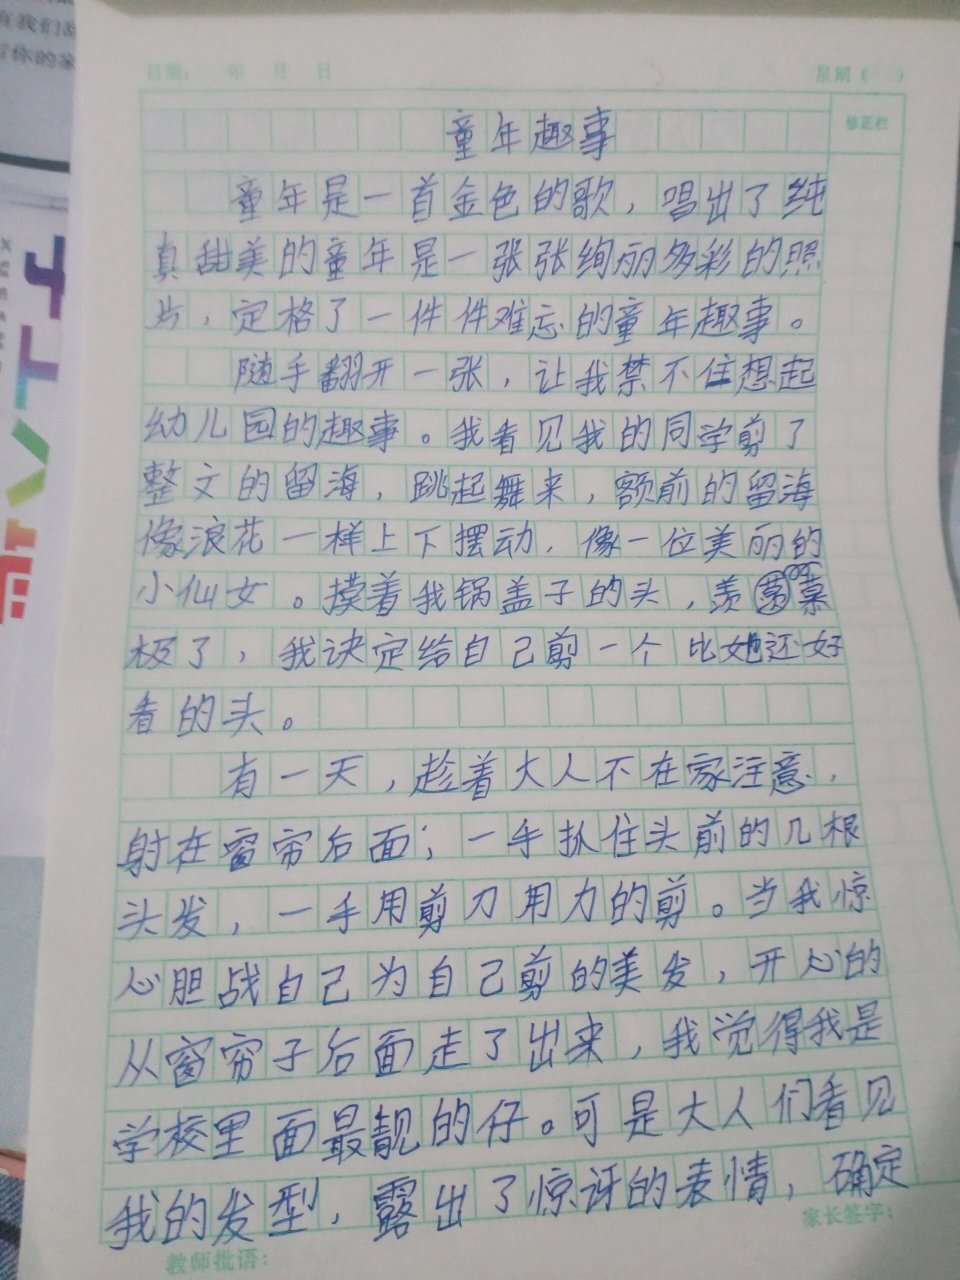 在我们
写你的家
日期： 年 月 日
星期（ ）
修正栏
童年趣事
童年是一首金色的歌，唱出了纯
真甜美的童年是一张张绚丽多彩的照
片，定格了一件件难忘的童年趣事。
随手翻开一张，让我禁不住想起
幼儿园的趣事。我看见我的同学剪了
整文的留海，跳起舞来，额前的留海
像浪花一样上下摆动，像一位美丽的
小仙女。摸着我锅盖子的头，羡慕
极了，我决定给自己剪一个比她还好
看的头。
有一天，趁着大人不在家注意，
射在窗帘后面；一手抓住头前的几根
头发，一手用剪刀用力的剪。当我惊
心胆战自己为自己剪的美发，开心的
从窗帘子后面走了出来，我觉得我是
学校里面最靓的仔。可是大人们看见
我的发型，露出了惊讶的表情，确定
教师批语：
家长签字：